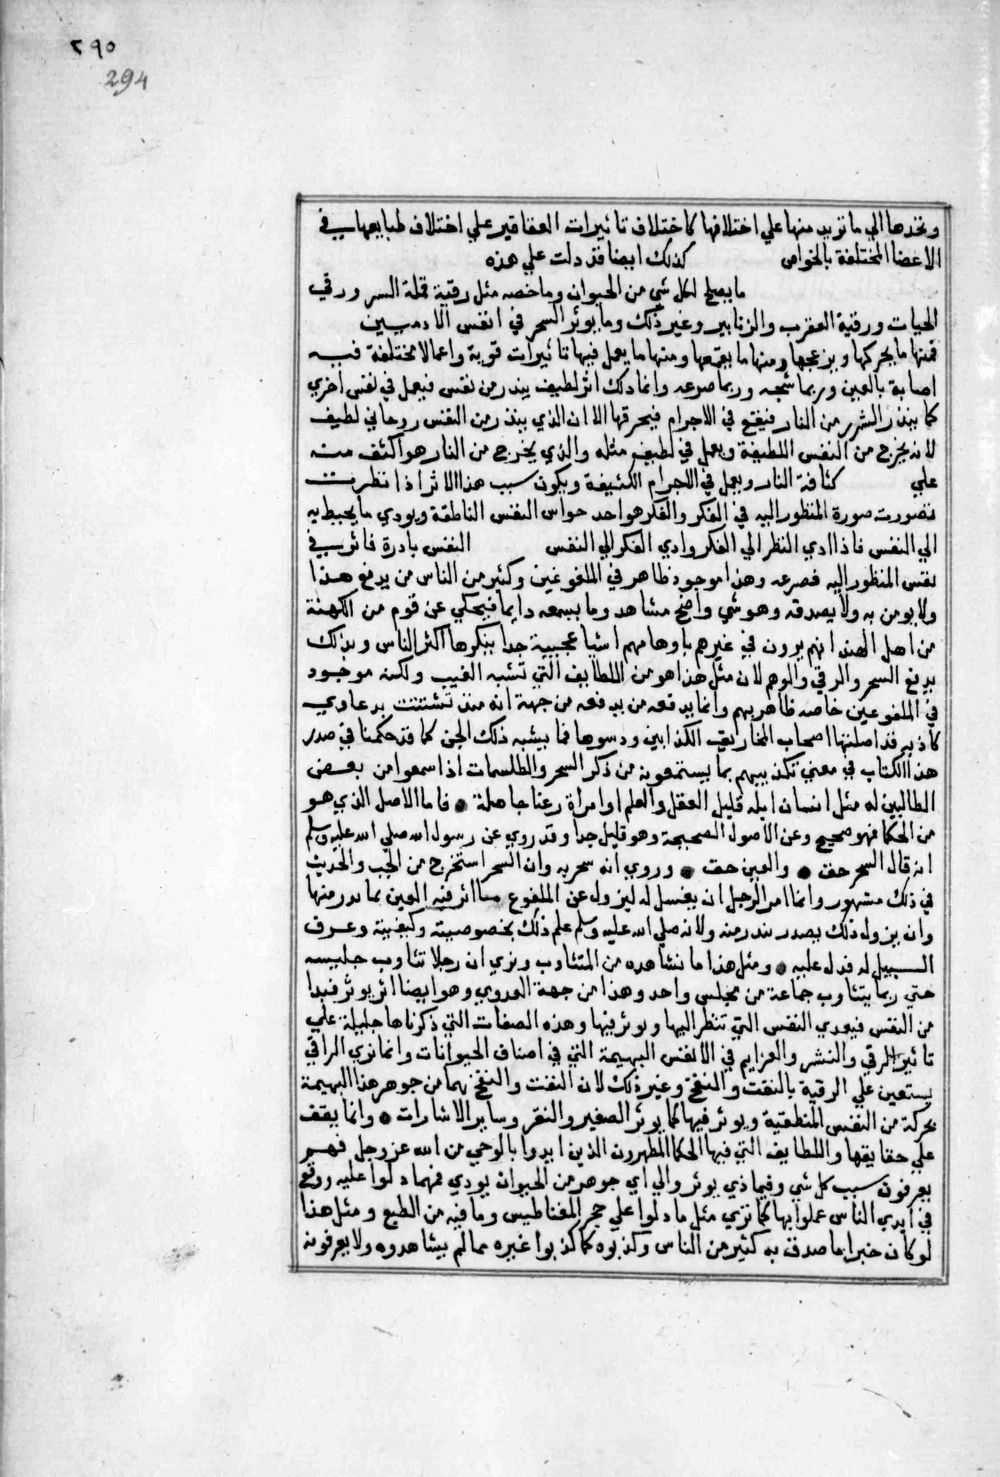 ٢٩٥
294
وتحدها الي ما تريد منها علي اختلافها كاختلاف تاثيرات العقاقير علي اختلاف طبايعها في
الاعضا المختلفة بالخواص كذلك ايضا قد دلت علي هذه
ما يصلح لكل شي من الحيوان وما خصه مثل رقية نملة السر ورقي
الحيات ورقية العقرب والزنابير وغير ذلك وما يوثر السحر في انفس الادميين
فمنها ما يحركها ويزعجها ومنها ما يقمعها ومنها ما يعمل فيها تاثيرات قوية واعمالا مختلفة فيه
اصابة بالعين وربما شجه وربما صرعه وانما ذلك اثر لطيف يبدر من نفس فيعمل في نفس اخري
كما يبذر الشرر من النار فيقع في الاجرام فيحرقها الا ان الذي يبذر من النفس روحاني لطيف
لانه يخرج من النفس اللطيفة ويعمل في لطيف مثله والذي يخرج من النار هو اكثف منه
علي كثافة النار ويعمل في الاجرام الكثيفة ويكون سبب هذا الاثر اذا نظرت
تصورت صورة المنظور اليه في الفكر والفكر هو احد حواس النفس الناطقة ويودي ما يحيط به
الي النفس فاذا ادي النظر الي الفكر وادي الفكر الي النفس النفس بادرة فاثر في
نفس المنظور اليه فصرعه وهذا موجود ظاهر في الملقوعين وكثير من الناس من يدفع هذا
ولا يومن به ولا يصدقه وهو شي واضح مشاهد وما يسمعه دايما فيحكي عن قوم من الكهنة
من اهل الهند انهم يورون في غيرهم باوهامهم اشيا عجيبة جدا ينكرها اكثر الناس وبذلك
يدفع السحر والرقي والوهم لان مثل هذا هو من اللطايف التي تشبه الغيب ولكنه موجود
في الملقوعين خاصه ظاهر بهم وانما يدفعه من يدفعه من جهة انه منذ تشتتت بدعاوي
كاذبه قد اصلتها اصحاب المخاريق الكذابين ودسوها فما يشبه ذلك الجن كما قد حكمنا في صدر
هذا الكتاب في معني تكذيبهم بما يستمعونه من ذكر السحر والطلسمات اذا سمعوا من بعض
الطالبين له مثل انسان ابله قليل العقل والعلم او امراة رعنا جاهلة • فاما الاصل الذي هو
من الحكما فهو صحيح وعن الاصول الصحيحة وهو قليل جدا وقد روي عن رسول الله صلي الله عليه وسلم
انه قال السحر حق • والعين حق • وروي انه سحر به وان السحر استخرج من الجب والحديث
في ذلك مشهور وانما امر الرجل ان يغسل له ليزول عن الملقوع ما اثر فيه العين بما بدر منها
وان يزول ذلك بصدر بندر منه ولانه صلي الله عليه وسلم علم ذلك بخصوصيته وكيفيته وعرف
السبيل له فدله عليه • ومثل هذا ما نشاهده من المتثاوب ونري ان رجلا تثاوب جليسه
حتي ربما يتثاوب جماعة من مجلس واحد وهذا من جهة العدوي وهو ايضا اثر يوثر فيدا
من النفس فيعدي النفس التي تنظر اليها ويوثر فيها وهذه الصفات التي ذكرناها جليلة علي
تاثير الرقي والنشر والعزايم في الانفس البهيمة التي في اصناف الحيوانات وانما نري الراقي
يستعين علي الرقية بالنفث والنفخ وغير ذلك لان النفث والنفخ بهما من جوهر هذا البهيمة
بحركة من النفس المنطقية ويوثر فيها كما يوثر الصفير والنقر وساير الاشارات • وانما يقف
علي حقايقها واللطايف التي فيها الحكما المطهرون الذين ايدوا بالوحي من الله عز وجل فهم
يعرفون سبب كل شي وفيما ذي يوثر والي اي جوهر من الحيوان يودي فمهما دلوا عليه ووقع
في ايدي الناس عملوا بها كما نري مثل ما دلوا علي حجر المغناطيس وما فيه من الطبع ومثل هذا
لو كان خبرا ما صدق به كثير من الناس وكذبوه كما كذبوا غيره مما لم يشاهدوه ولا يعرفونه